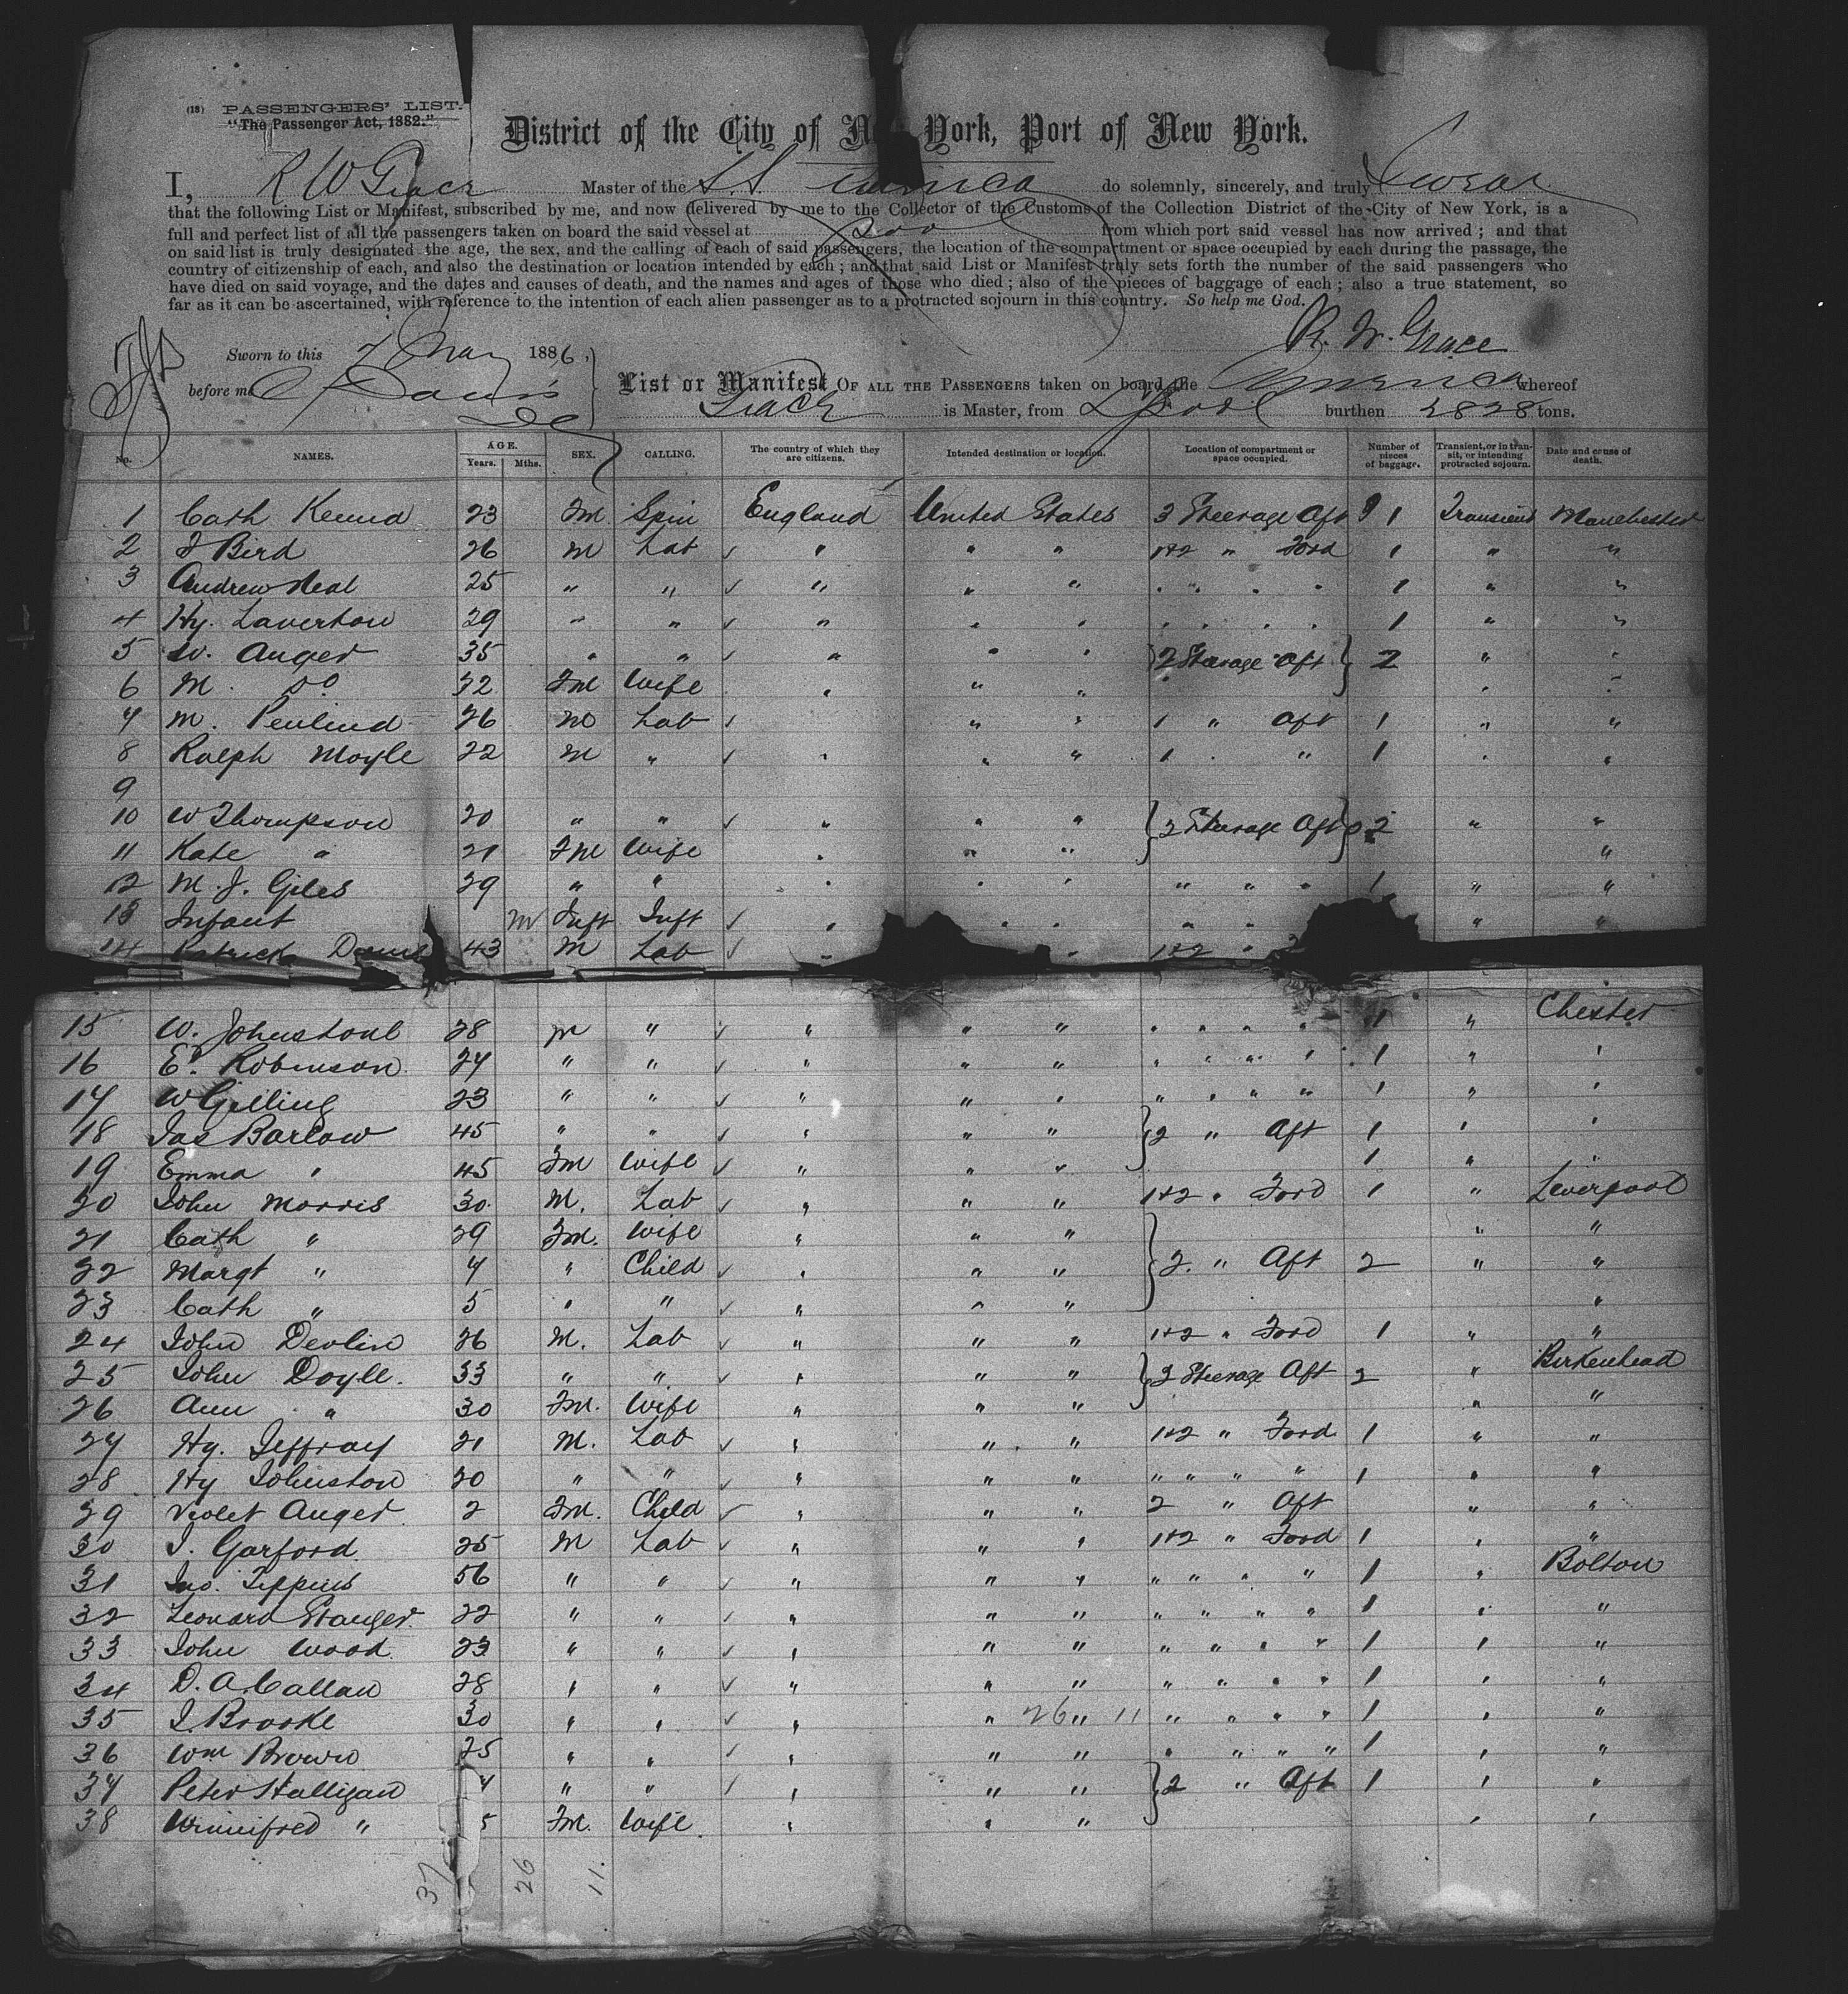 (13) PASSENGERS' LIST.
"The Passenger Act, 1882."
District of the City of New York, Port of New York.
I, R W Grace Master of the S.S. America do solemnly, sincerely, and truly Swear
that the following List or Manifest, subscribed by me, and now delivered by me to the Collector of the Customs of the Collection District of the City of New York, is a
full and perfect list of all the passengers taken on board the said vessel at L'pool from which port said vessel has now arrived; and that
on said list is truly designated the age, the sex, and the calling of each of said passengers, the location of the compartment or space occupied by each during the passage, the
country of citizenship of each, and also the destination or location intended by each; and that said List or Manifest truly sets forth the number of the said passengers who
have died on said voyage, and the dates and causes of death, and the names and ages of those who died; also of the pieces of baggage of each; also a true statement, so
far as it can be ascertained, with reference to the intention of each alien passenger as to a protracted sojourn in this country. So help me God.
R. W. Grace
Sworn to this 7 May 1886,
before me
List or Manifest OF ALL THE PASSENGERS taken on board the America whereof
Grace is Master, from L'pool burthen 2828 tons.
No. NAMES. AGE. Years. Mths. SEX. CALLING. The country of which they are citizens. Intended destination or location. Location of compartment or space occupied. Number of pieces of baggage. Transient, or in transit, or intending protracted sojourn. Date and cause of death.
1 Cath Kenna 23 Fm. Spin England United States 3 Steerage Aft 1 Transient Manchester
2 J Bird 26 M Lab " " " 1+2 " Ford 1 " "
3 Andrew Neal 25 " " " " " " " " " 1 " "
4 Hy. Laverton 29 " " " " " " " " " 1 " "
5 W. Anger 35 " " " " " 2 Steerage Aft 2 " "
6 M. Do 32 Fm Wife " " " " "
7 M. 26 M Lab " " " 1 " Aft 1 " "
8 Ralph Moyle 22 M " " " " 1 " " 1 " "
9
10 W Thompson 20 " " " " " 2 Steerage Aft 2 " "
11 Kate " 21 Fm Wife " " " "
12 M. J. Giles 29 " " " " " " " " 1 " "
13 Infant M Inft Inft " " " " " " "
14 Patrick 43 M Lab " " 1+2 "
15 W. Johnstone 28 M " " " " " " " " 1 " Chester
16 E. Robinson 24 " " " " " " " " " 1 " "
17 W Gilling 23 " " " " " " " " " 1 " "
18 Jas Barlow 45 " " " " " 2 " Aft 1 " "
19 Emma " 45 Fm Wife " " " 1 " "
20 John Morris 30 M. Lab " " " 1+2 " Ford 1 " Liverpool
21 Cath " 29 Fm. Wife " " " " "
22 Margt " 7 " Child " " " 2. " Aft 2 " "
23 Cath " 5 " " " " " "
24 John Devlin 26 M. Lab " " " 1+2 " Ford 1 " "
25 John Doyle. 33 " " " " " 2 Steerage Aft 2 " Birkenhead
26 Ann " 30 Fm. Wife " " " " "
27 Hy. Jeffray 21 M. Lab " " " 1+2 " Ford 1 " "
28 Hy Johnston 20 " " " " " " " " " 1 " "
29 Violet Anger 2 Fm. Child " " " 2 " Aft " "
30 J. Garford 25 M Lab " " " 1+2 " Ford 1 " "
31 Jno. 56 " " " " " " " " " 1 " Bolton
32 Leonard Stanger 22 " " " " " " " " " 1 " "
33 John Wood 23 " " " " " " " " " 1 " "
34 D. A. Callan 28 " " " " " " " " " 1 " "
35 J Brooke 30 " " " " 26 " 11 " " " " 1 " "
36 Wm Brown 25 " " " " " " " " " 1 " "
37 Peter Halligan 7 " " " " " 2 " Aft 1 " "
38 Winnifred " 5 Fm. Wife " " " " "
37 26 11.